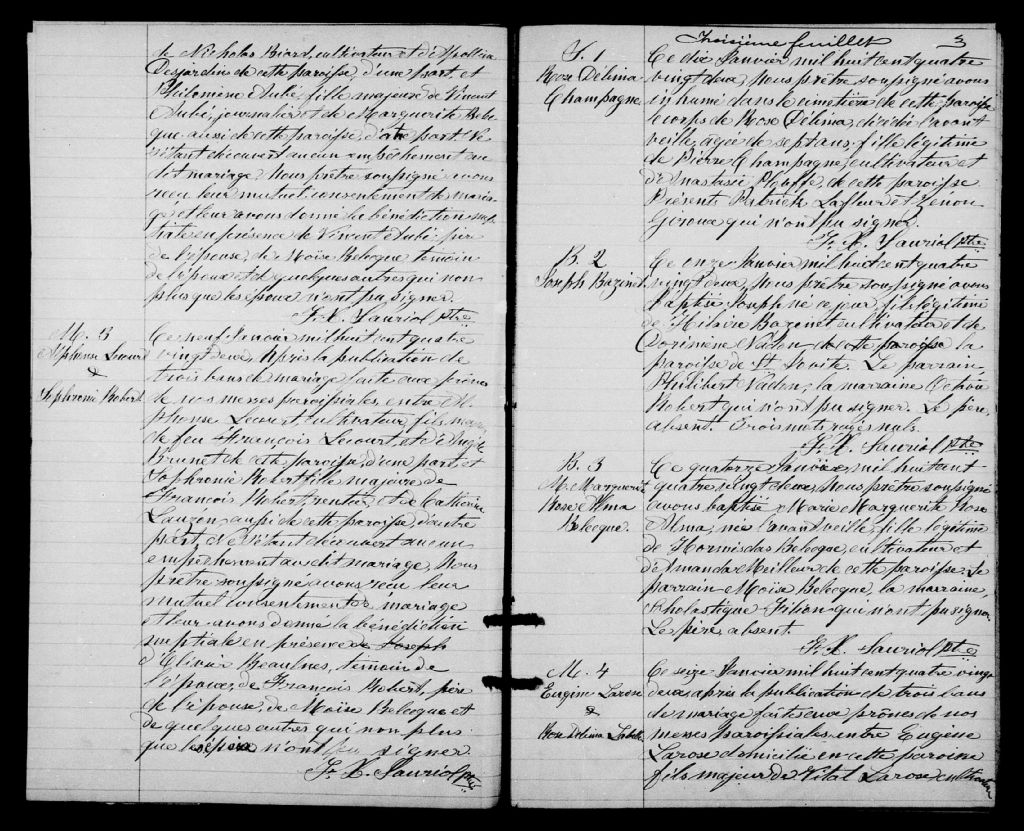 de Nicholas Biard, cultivateur et d'Apolline
Desjardins de cette paroisse, d'une part, et
Philomène Aubé fille majeure de Vincent
Aubé, journalier et de Marguerite Bele-
que aussi de cette paroisse, d'autre part. Ne
s'étant découvert aucun empêchement au
dit mariage, Nous prêtre soussigné avons
reçu leur mutuel consentement de maria-
ge et leur avons donné la bénédiction nup-
tiale en présence de Vincent Aubé père
de l'épouse, de Moïse Belecque, temoin
de l'époux et de quelques autres qui non
plus que les époux n'ont pu signer.
F. X. Jauriol ptre
M. 3
Alphonse Lecourt
&
Sophronie Robert
Ce neuf Janvier mil huit cent quatre
vingt deux, Après la publication de
trois bans de mariage faite aux prônes
de nos messes paroissiales, entre Al-
phonse Lecourt, cultivateur, fils majeur
de feu François Lecourt, et d'Angèle
Brunet de cette paroisse, d'une part, et
Sophronie Robert fille majeure de
François Robert, rentier, et de Catherine
Lauzon, aussi de cette paroisse, d'autre
part, Ne s'étant découvert aucun
empêchement au dit mariage, Nous
prêtre soussigné avons reçu leur
mutuel consentement de mariage
et leur avons donné la bénédiction
nuptiale en présence de Joseph
d'Olivier Beaulnes, temoin de
l'époux, de François Robert, père
de l'épouse, de Moïse Belecque et
de quelques autres qui non plus
que les époux n'ont pu signer
F. X. Jauriol ptre
Troisième feuillet 3
S. 1
Rose Délima
Champagne
Ce dix Janvier mil huit cent quatre
vingt deux, Nous prêtre soussigné avons
inhumé dans le cimetière de cette paroisse
le corps de Rose Délima, décédée l'avant
veille, agée de sept ans, fille légitime
de Pierre Champagne, cultivateur et
d'Anastasie Plouffe, de cette paroisse
Présents Patrick Lafleur et Zenon
Giroux qui n'ont pu signer.
F. X. Jauriol ptre
B. 2
Joseph Bazinet
Ce onze Janvier mil huit cent quatre
vingt deux, Nous prêtre soussigné avons
baptisé Joseph né ce jour, fils légitime
de Hilaire Bazinet cultivateur et de
Dorimène Nadon de cette paroisse la
paroisse de St Jovite. Le parrain,
Philibert Nadon, la marraine
Robert qui n'ont pu signer. Le père,
absent. Trois mots rayés nuls.
F. X. Jauriol ptre
B. 3
M. Marguerite
Rose Alma
Belecque.
Ce quatorze Janvier, mil huit cent
quatre vingt deux, Nous prêtre soussigné
avons baptisé Marie Marguerite Rose
Alma, née l'avant veille, fille légitime
de Hormisdas Belecque, cultivateur et
de Amanda Meilleur de cette paroisse. Le
parrain Moïse Belecque, la marraine,
Scholastique Filion qui n'ont pu signer
Le père, absent.
F. X. Jauriol ptre
M. 4
Eugène Larose
&
Rose Delima Labelle
Ce seize Janvier mil huit cent quatre vingt
deux après la publication de trois bans
de mariage faite aux prônes de nos
messes paroissiales entre Eugène
Larose domicilié en cette paroisse
fils majeur de Vital Larose cultivateur